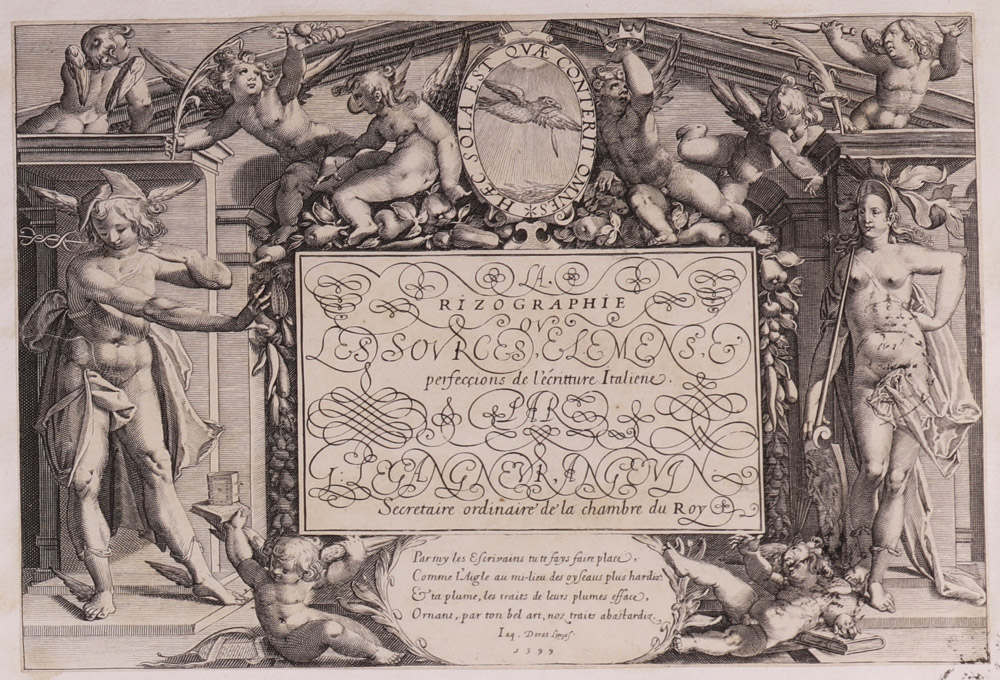 HÆC SOLA EST QVÆ CONTERIT OMNES
LA
RIZOGRAPHIE
OV
LES SOVRCES, ELEMENS, &
perfecçions de l'écritture Italiene.
PAR
LEGANGNEVR, ANGEVIN
Secretaire ordinaire de la chambre du Roy
Par my les Escrivains tu te fays faire place,
Comme l'Aigle au mi-lieu des oyseaus plus hardiz
& ta plume, les traits de leurs plumes efface,
Ornant, par ton bel art, noz traits abastardiz.
Iaq. Dorat Limos.
1599